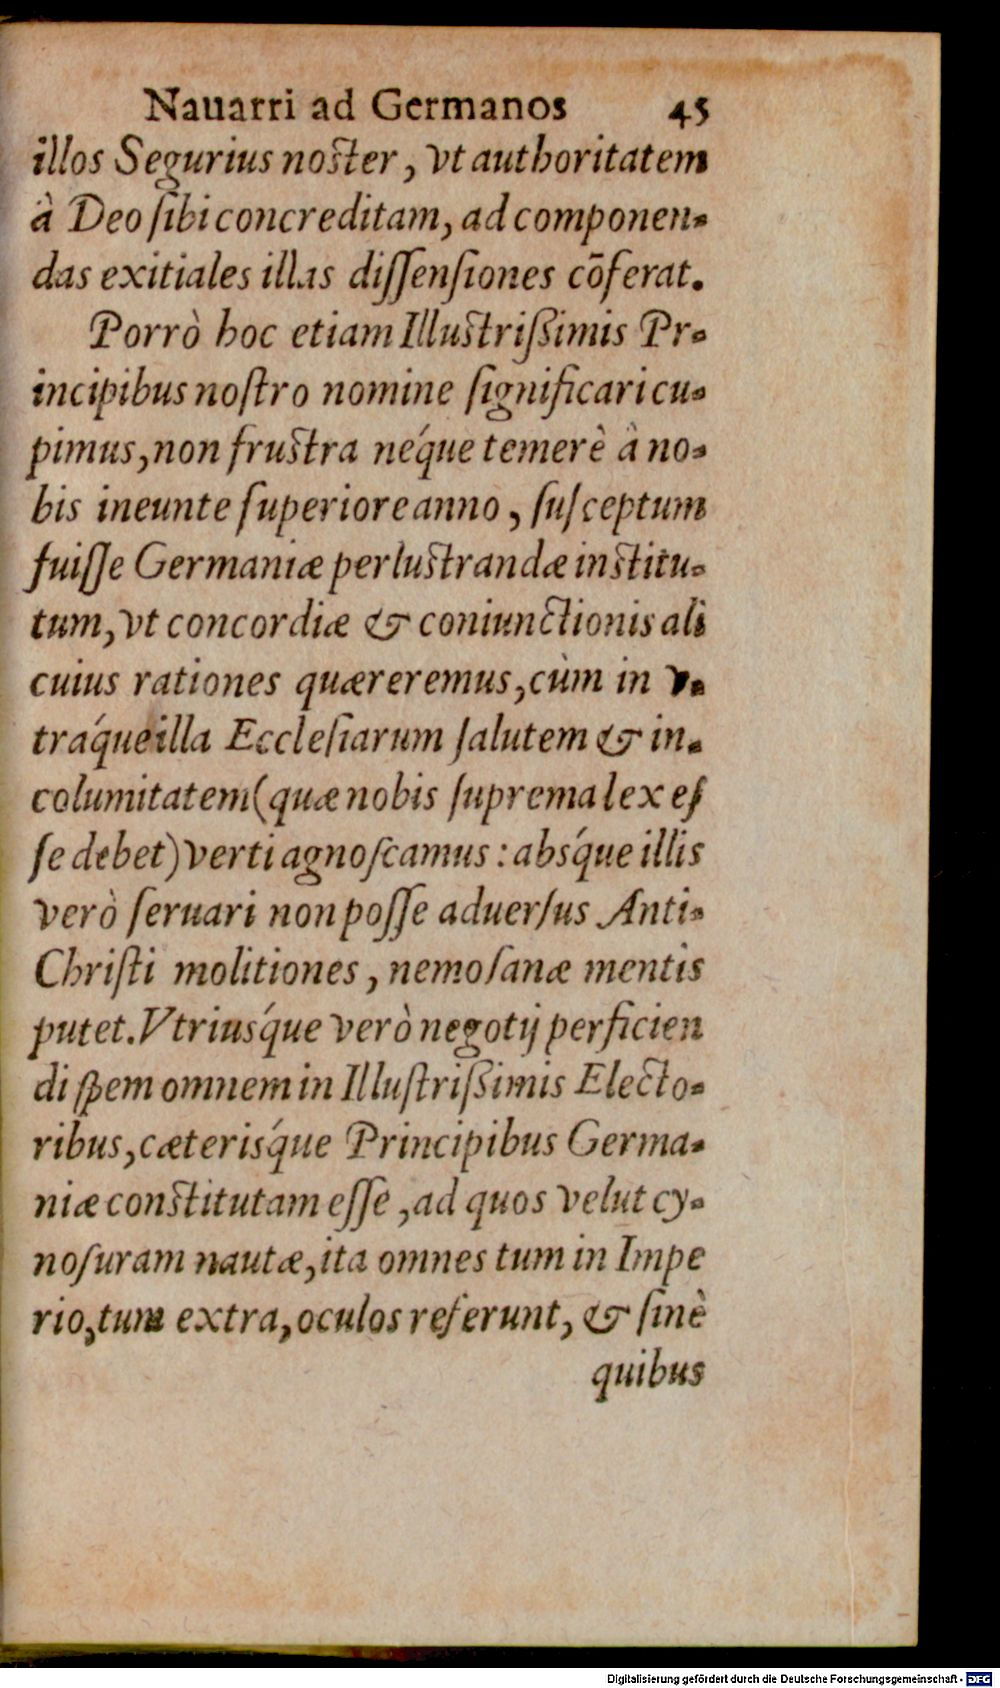 Nauarri ad Germanos 45
illos Segurius noster, vt authoritatem
à Deo ſibi concreditam, ad componen-
das exitiales illas diſſenſiones cōferat.
Porrò hoc etiam Illustriſſimis Pr-
incipibus noſtro nomine ſignificari cu-
pimus, non frustra neq́ue temerè à no-
bis ineunte ſuperiore anno, ſuſceptum
fuiſſe Germaniæ perlustrandæ institu-
tum, vt concordiæ & coniunctionis ali
cuius rationes quæreremus, cùm in v-
traq́ue illa Eccleſiarum ſalutem & in-
columitatem (quæ nobis ſuprema lex eſ
ſe debet) verti agnoſcamus: absq́ue illis
verò ſeruari non poſſe aduerſus Anti-
Chriſti molitiones, nemo ſanæ mentis
putet. Vtriusq́ue verò negotij perficien
di ſpem omnem in Illuſtriſſimis Electo-
ribus, cæterisq́ue Principibus Germa-
niæ constitutam eſſe, ad quos velut cy-
noſuram nautæ, ita omnes tum in Impe
rio, tum extra, oculos referunt, & ſinè
quibus
Digitalisierung gefördert durch die Deutsche Forschungsgemeinschaft - DFG